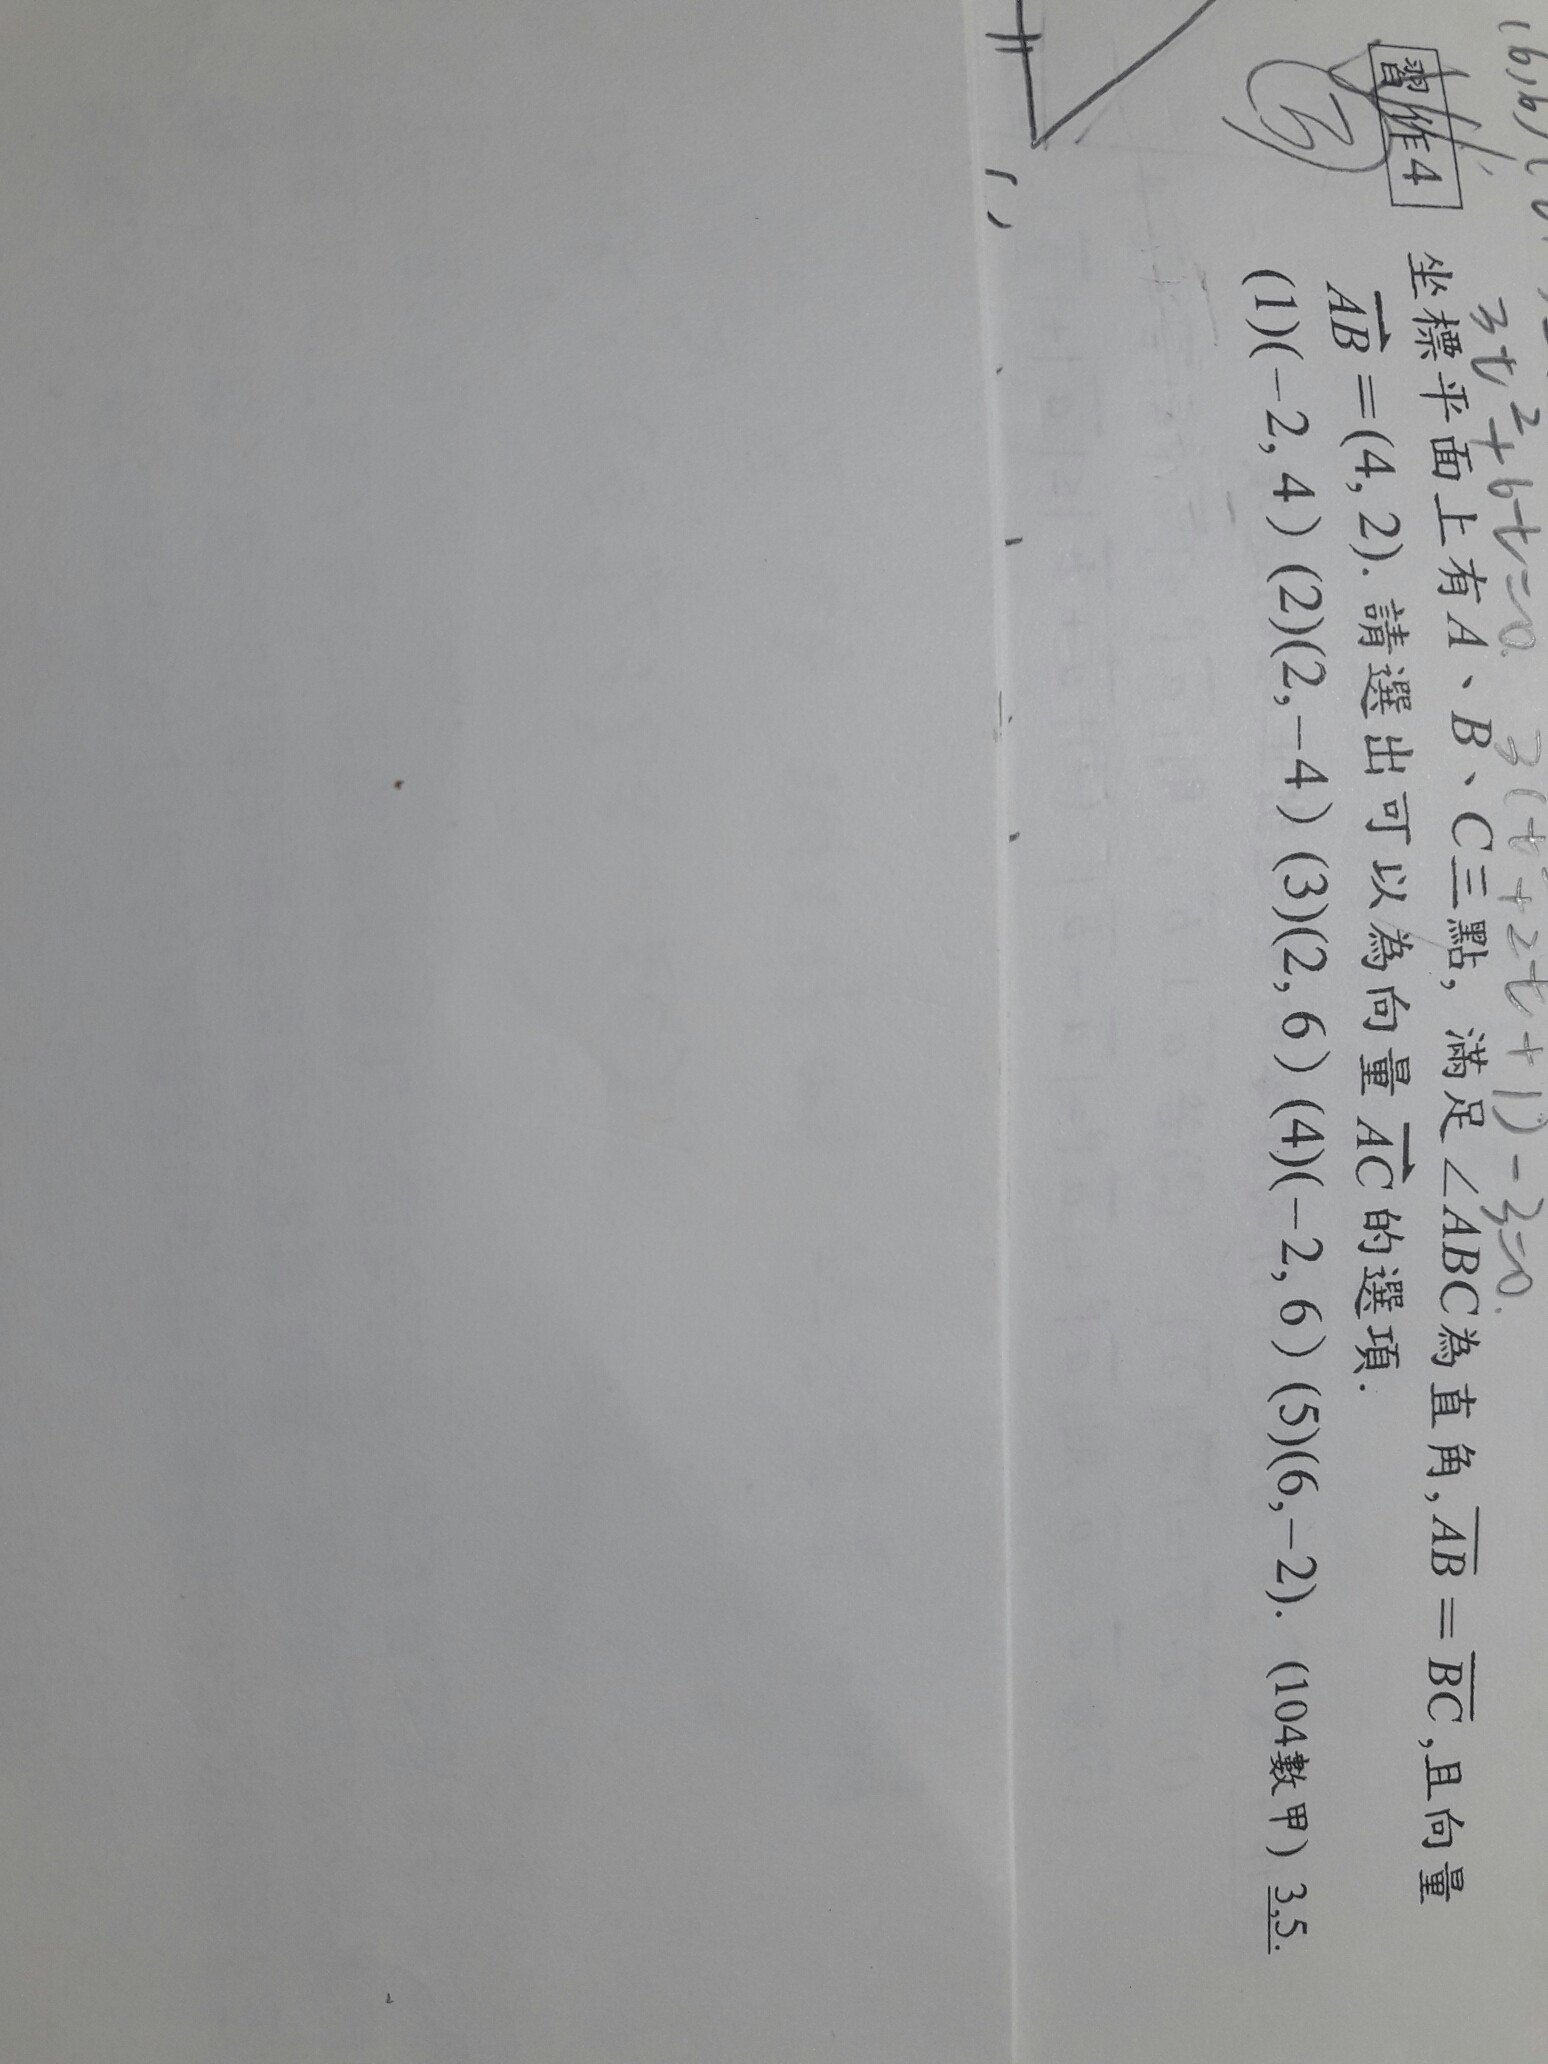 3t²+6t=0. 3(t²+2t+1)-3=0.
習作4 坐標平面上有A、B、C三點, 滿足∠ABC為直角, AB=BC, 且向量
AB=(4, 2). 請選出可以為向量AC的選項.
(1)(-2, 4) (2)(2, -4) (3)(2, 6) (4)(-2, 6) (5)(6, -2). (104數甲) 3,5.